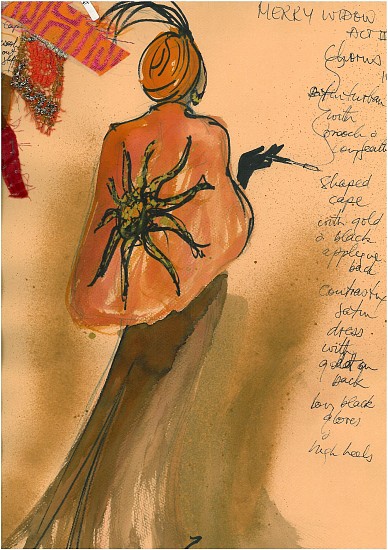 MERRY WIDOW
ACT III
Chorus
satin turban
with
brooch &
long feather
shaped
cape
with gold
& black
applique
back
contrasting
satin
dress.
with
gold on
back
long black
gloves
&
high heels
cape